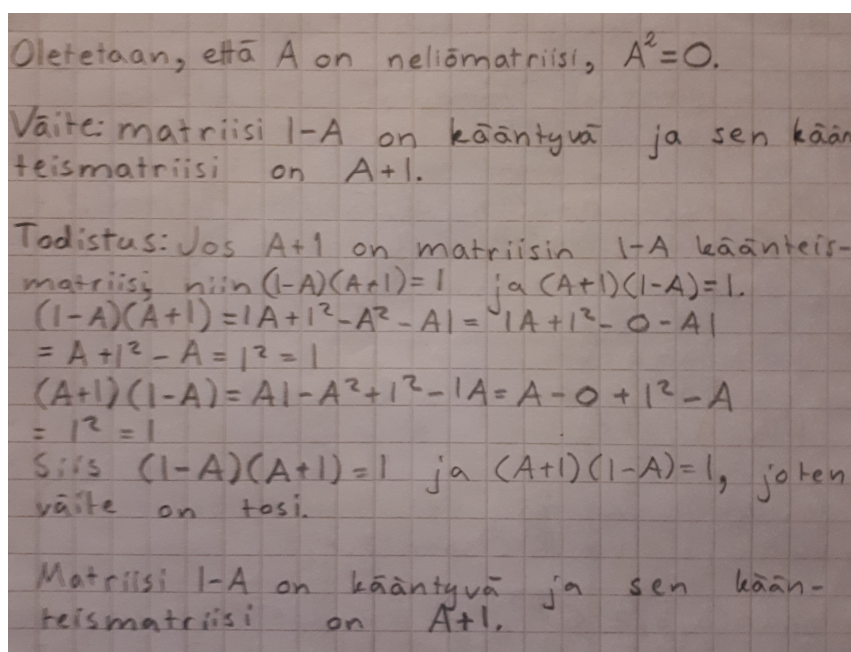 Oletetaan, että A on neliömatriisi, A²=0.
Väite: matriisi I-A on kääntyvä ja sen kään
teismatriisi on A+I.
Todistus: Jos A+I on matriisin I-A käänteis-
matriisi, niin (I-A)(A+I)=I ja (A+I)(I-A)=I.
(I-A)(A+I)=IA+I²-A²-AI=IA+I²-0-AI
=A+I²-A=I²=I
(A+I)(I-A)=AI-A²+I²-IA=A-0+I²-A
=I²=I
Siis (I-A)(A+I)=I ja (A+I)(I-A)=I, joten
väite on tosi.
Matriisi I-A on kääntyvä ja sen kään-
teismatriisi on A+I.